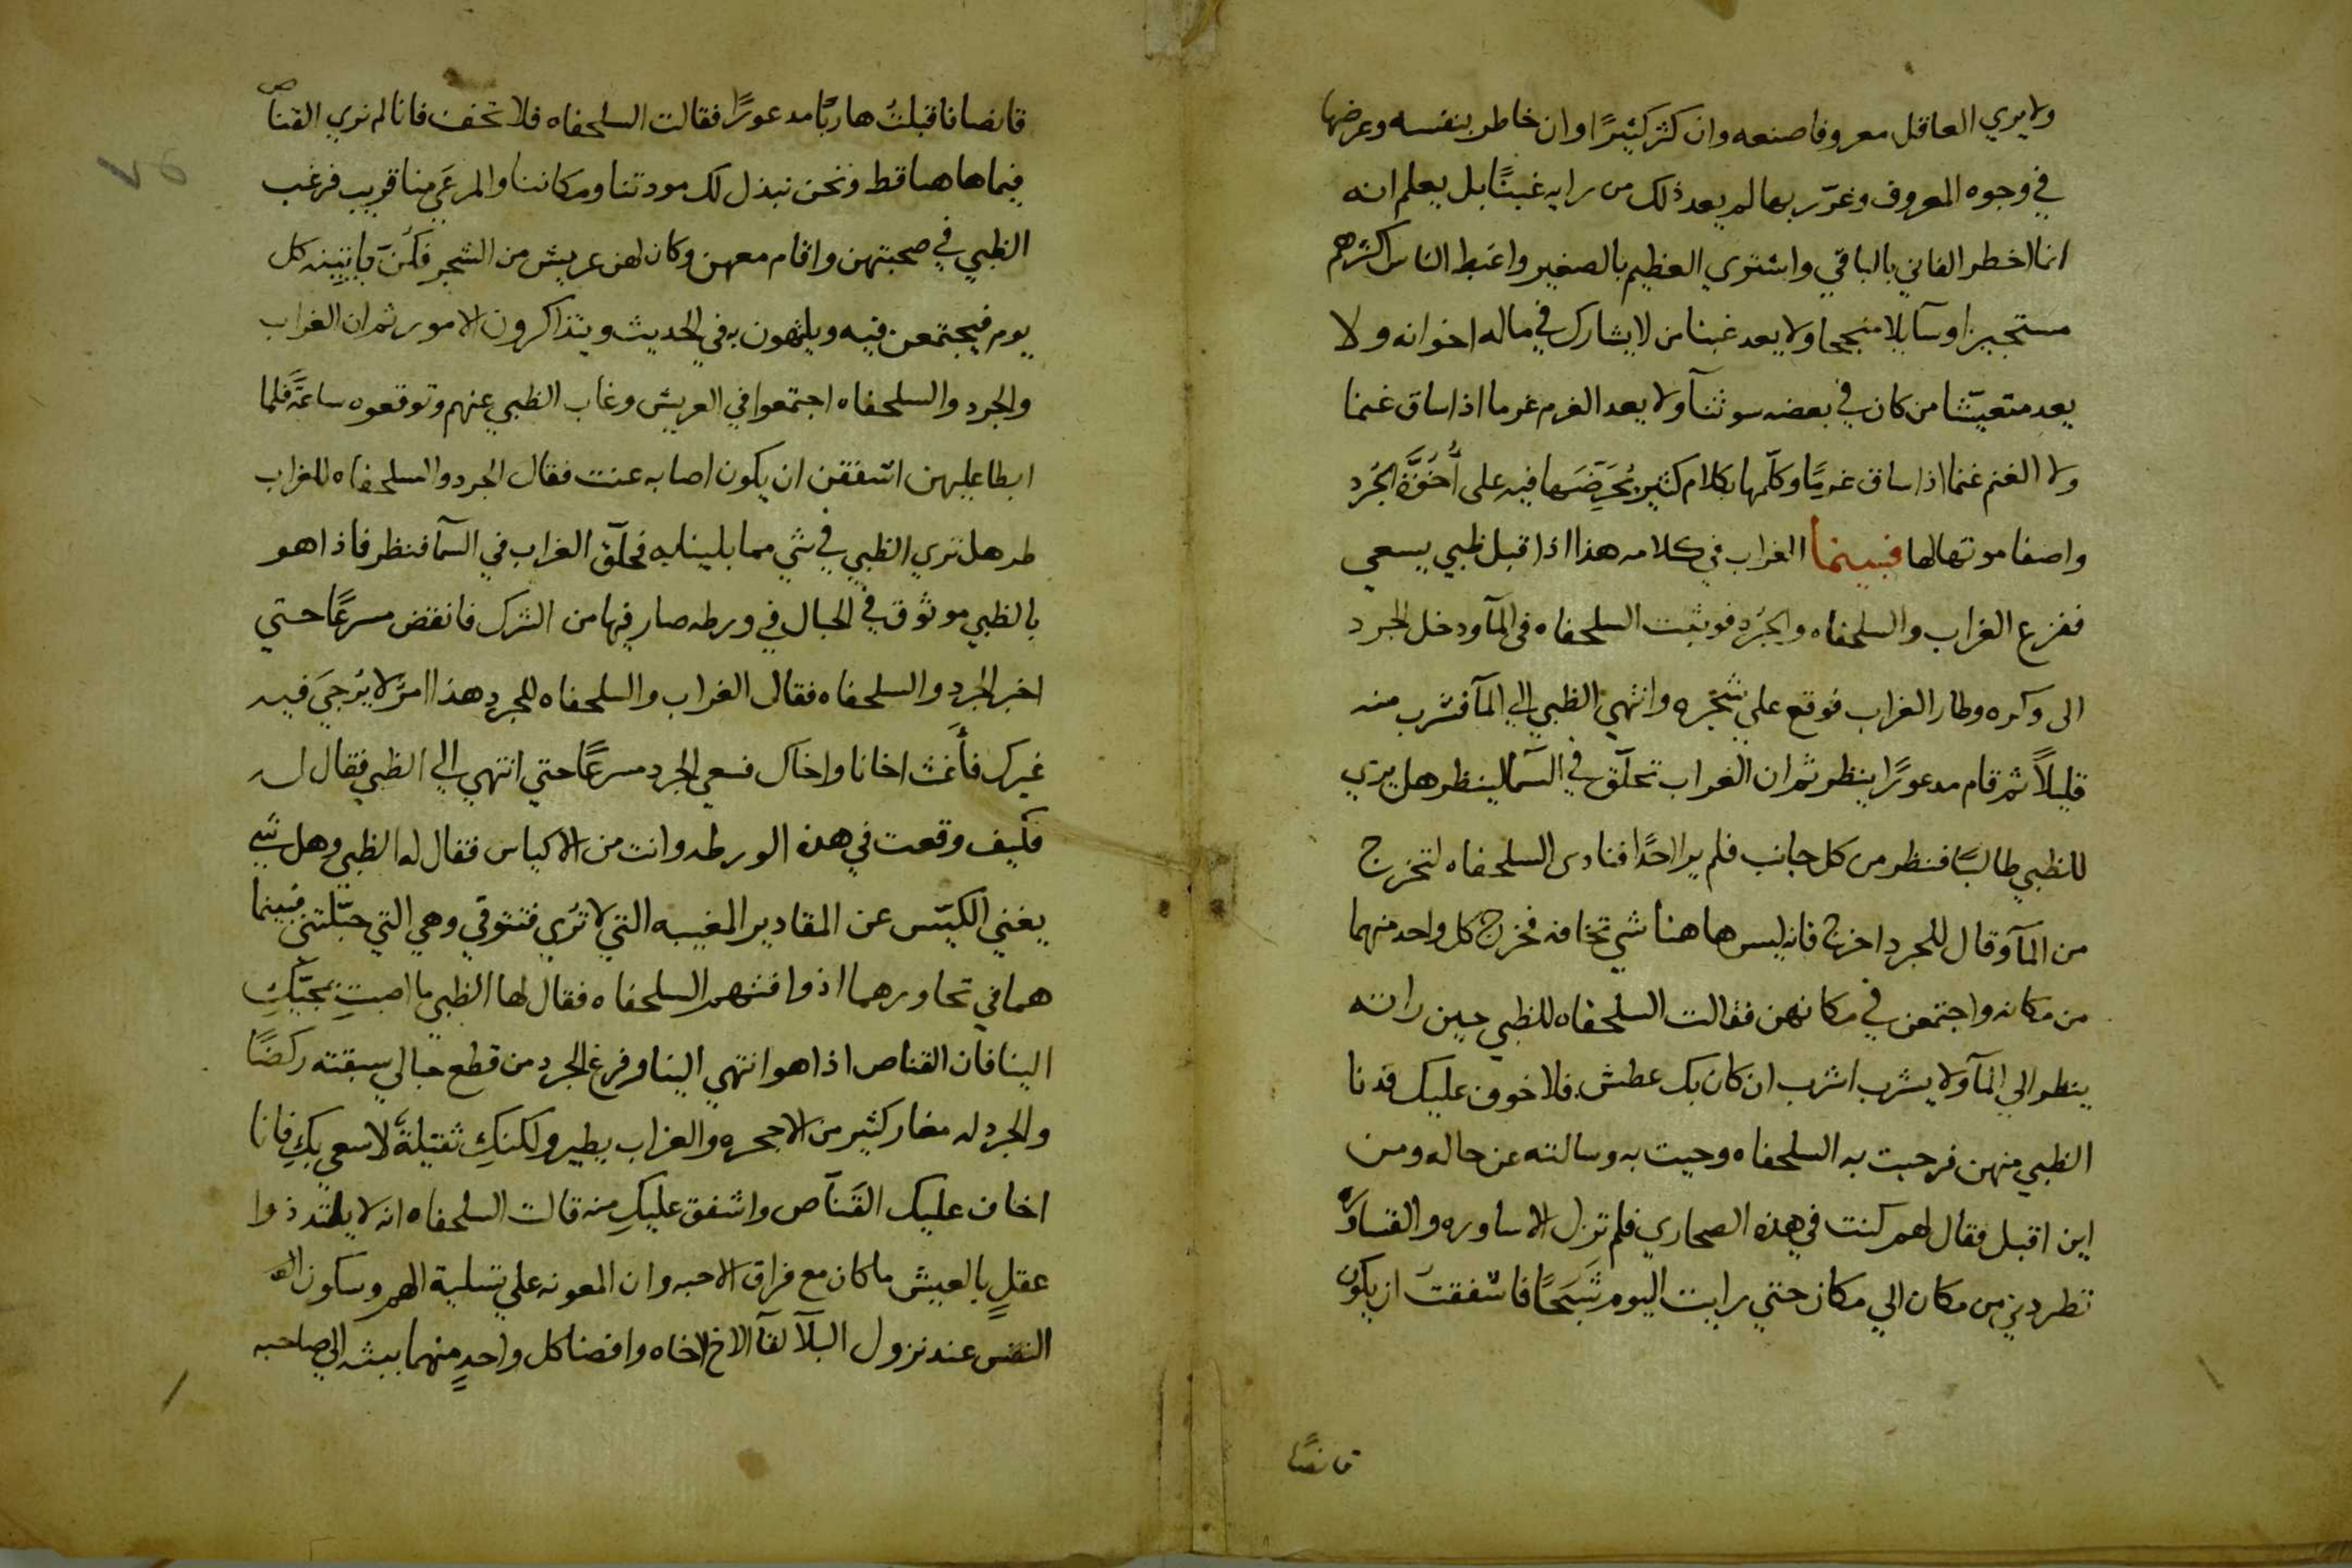 ولا يري العاقل معروفا صنعه وان كثر كثيرًا وان خاطر بنفسه وعرضها
في وجوه المعروف وغرّر بها لم يعد ذلك من رايه غبنًا بل يعلم انه
انما اخطر الفاني بالباقي واشتري العظيم بالصغير واغبط الناس اكثرهم
مستجيرا وسآيلا منجحا ولا يعد غبنا من لا يشارك في ماله اخوانه ولا
يعد متعيّشا من كان في بعضه سو ثنآ ولا يعد الغرم غرما اذا ساق غنما
ولا الغنم غنما اذا ساق غرمًا وكلّمها بكلام كثير يُحَرِّضَها فيه على أُخُوَّة الجُرد
واصفا موتها لها فبينما الغراب في كلامه هذا اذ اقبل ظبي يسعي
ففزع الغراب والسلحفاه والجُرد فوثبت السلحفاه في المآ ودخل الجرد
الى وكره وطار الغراب فوقع علي شجره وانتهي الظبي الي المآ فشرب منه
قليلاً ثم قام مدعورًا ينظر ثم ان الغراب تحلّق في السما لينظر هل يري
للظبي طالبًا فنظر من كل جانب فلم ير احدًا فنادى السلحفاه لتخرج
من المآ وقال للجرد اخرج فانه ليس هاهنا شي تخافه فخرج كل واحد منهما
من مكانه واجتمعن في مكانهن فقالت السلحفاه للظبي حين راته
ينظر الي المآ ولا يشرب اشرب ان كان بك عطش فلا خوف عليك فدنا
الظبي منهن فرحبت به السلحفاه وحيت به وسالته عن حاله ومن
اين اقبل فقال لهم كنت في هذه الصحاري فلم تزل الاساوره والقساوره
تطردني من مكان الي مكان حتي رايت اليوم شَبَحًا فاشفقت ان يكون
قانصًا
قانصا فاقبلتُ هاربًا مدعورًا فقالت السلحفاه فلا تخف فانا لم نري القناص
فيما هاهنا قط ونحن نبذل لك مودتنا ومكاننا والمرعَي منا قريب فرغب
الظبي في صحبتهن واقام معهن وكان لهن عريش من الشجر فكُنّ ياتينه كل
يوم فيجتمعن فيه ويلتهون به في الحديث ويتذاكرون الامور ثم ان الغراب
والجرد والسلحفاه اجتمعوا في العريش وغاب الظبي عنهم وتوقعوه ساعةً فلما
ابطا عليهن اشفقن ان يكون اصابه عنت فقال الجرد والسلحفاه للغراب
طر هل تري الظبي في شي مما يلينا به فحلّق الغراب في السمآ فنظر فاذا هو
بالظبي موثوق في الحبال في ورطه صار فيها من الشرك فانقض مسرعًا حتي
اخبر الجرد والسلحفاه فقال الغراب والسلحفاه للجرد هذا امرٌ لا يُرجيَ فيه
غيرك فأغث اخانا واخاك فسعي الجرد مسرعًا حتي انتهي الي الظبي فقال له
فكيف وقعت في هذه الورطه وانت من الاكياس فقال له الظبي وهل شي
يغني الكيّس عن المقادير المغيبه التي لا تُري فتتوقي وهي التي حبّلتني فبينما
هما في تحاورهما اذ وافتهم السلحفاه فقال لها الظبي ما اصبتِ بمجيّكِ
الينا فان القناص اذا هو انتهي الينا وفرغ الجرد من قطع حبالي سبقته ركضًا
والجرد له مغار كثير من الاجحره والغراب يطير ولكنكِ ثقيلةٌ لا سعي بكِ فانا
اخاف عليك القَنّاص واشفق عليكِ منه قالت السلحفاه انه لا يلتد ذوا
عقلٍ بالعيش ما كان مع فراق الاحبه وان المعونه علي تسلية الهم وسكون
النفس عند نزول البلآ لقآ الاخ اخاه وافضا كل واحدٍ منهما ببثه الي صاحبه